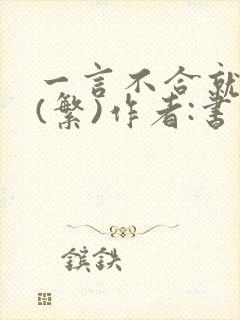 一言不合就
(繁)作者:書
鑌鉄